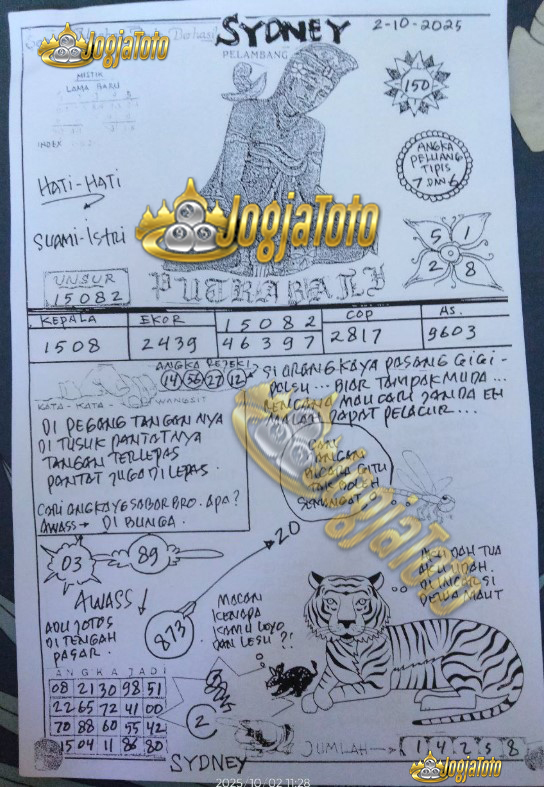 SYDNEY
2-10-2025
JogjaToto
PELAMBANG
MISTIK
LAMA BARU
INDEX
150
ANGKA
PELUANG
TIPIS
7 DAN 6
HATI-HATI
SUAMI-ISTRI
JogjaToto
5 1
2 8
UNSUR
15082
PUTRA BALI
KEPALA EKOR 15082 COP AS.
1508 2439 46397 2817 9603
ANGKA REJEKI
14 56 27 12
SI ORANG KAYA PASANG GIGI-
PALSU... BIAR TAMPAK MUDA...
RENCANA MAU CARI JANDA EH
MALAH DAPAT PELACUR...
KATA-KATA WANGSIT
DI PEGANG TANGAN NYA
DI TUSUK PANTATNYA
TANGAN TERLEPAS
PANTAT JUGA DI LEPAS.
CARI ANGKAYE SABAR BRO. APA?
AWASS → DI BUNGA.
JANGAN
BICARA GITU
TAK BOLEH
JogjaToto
03
89
20
AWASS
ADU JOTOS
DI TENGAH
PASAR.
873
MACAN
KENAPA
KAMU LOYO
DAN LESU ?!
AKU DAH TUA
AKU UDAH
DI INCAR SI
DEWA MAUT
ANGKA JADI
08 21 30 98 51
22 65 72 41 00
70 88 60 55 42
15 04 11 86 80
2
SYDNEY
JUMLAH → 1 4 2 5 8
JogjaToto
2025/10/02 11:28